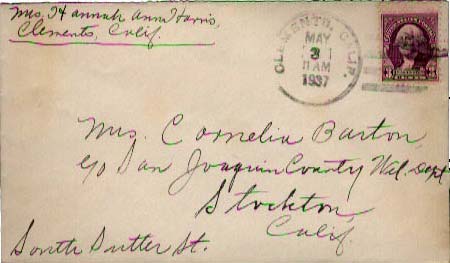 Mrs. Hannah Ann Harris,
Clements, Calif.
CLEMENTS, CALIF.
MAY
3
11 AM
1937
3 3
Mrs. Cornelia Barton,
c/o San Joaquin County Wel. Dept
Stockton,
Calif.
South Sutter St.